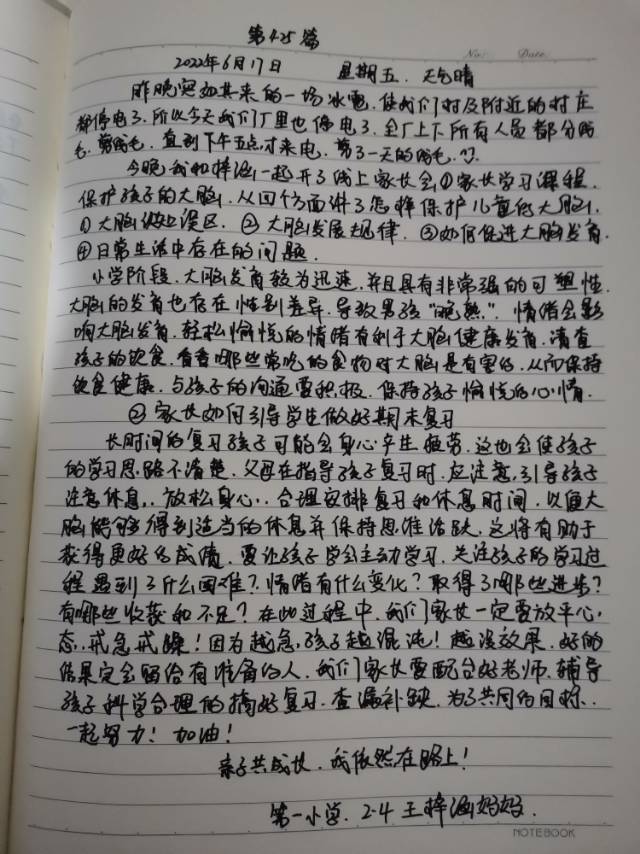 第425篇
No: Date:
2022年6月17日 星期五. 天气晴
昨晚突如其来的一场冰雹,使我们村及附近的村庄
都停电了.所以今天我们厂里也停电了.全厂上下所有人员都分鸭
毛.剪鸭毛.直到下午五点才来电,剪了一天的鸭毛.
今晚我和梓涵一起开了线上家长会①家长学习课程.
保护孩子的大脑.从四个方面讲了怎样保护儿童的大脑.
①大脑认知误区.②大脑发展规律.③如何促进大脑发育.
④日常生活中存在的问题.
小学阶段.大脑发育较为迅速.并且具有非常强的可塑性.
大脑的发育也存在性别差异.导致男孩“晚熟”.情绪会影
响大脑发育.轻松愉悦的情绪有利于大脑健康发育.清查
孩子的饮食.看看哪些常吃的食物对大脑是有害的.从而保持
饮食健康.与孩子的沟通要积极.保持孩子愉悦的心情.
②家长如何引导学生做好期末复习
长时间的复习孩子可能会身心产生疲劳.这也会使孩子
的学习思路不清楚.父母在指导孩子复习时.应注意引导孩子
注意休息..放松身心..合理安排复习和休息时间.以便大
脑能够得到适当的休息并保持思维活跃.这将有助于
获得更好的成绩.要让孩子学会主动学习.关注孩子的学习过
程遇到了什么困难?情绪有什么变化?取得了哪些进步?
有哪些收获和不足?在此过程中.我们家长一定要放平心
态.戒急戒躁!因为越急.孩子越混沌!越没效果.好的
结果定会留给有准备的人.我们家长要配合好老师.辅导
孩子科学合理的搞好复习.查漏补缺.为了共同的目标..
一起努力!加油!
亲子共成长.我依然在路上!
第一小学.2.4王梓涵妈妈.
NOTEBOOK